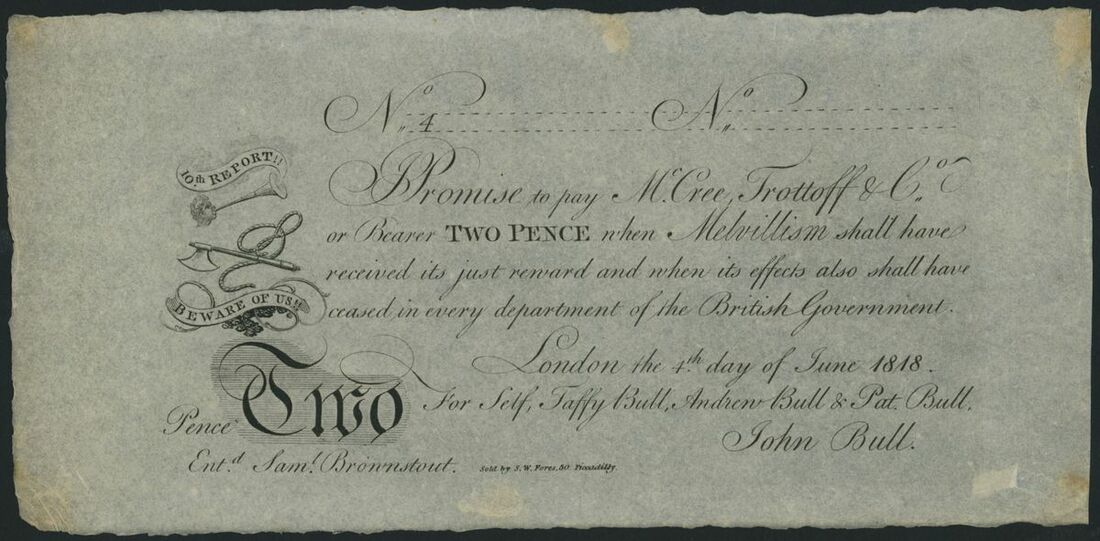 No. 4 No.
10.th REPORT!!
I Promise to pay Mc.Cree, Trottoff & Co.
or Bearer TWO PENCE when Melvillism shall have
received its just reward and when its effects also shall have
BEWARE OF US!!
ceased in every department of the British Government.
London the 4.th day of June 1818.
Pence Two
For Self, Taffy Bull, Andrew Bull & Pat. Bull.
John Bull.
Ent.d Saml. Brownstout.
Sold by S.W. Fores, 50 Piccadilly.